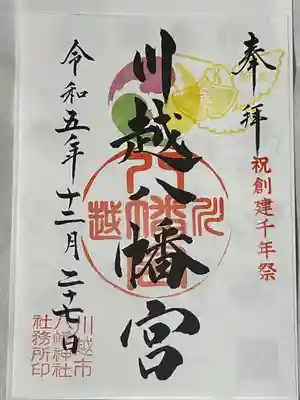 奉拝
祝創建千年祭
川越八幡宮
川越
八幡宮
令和五年十二月二十七日
川越市
八幡神社
社務所印